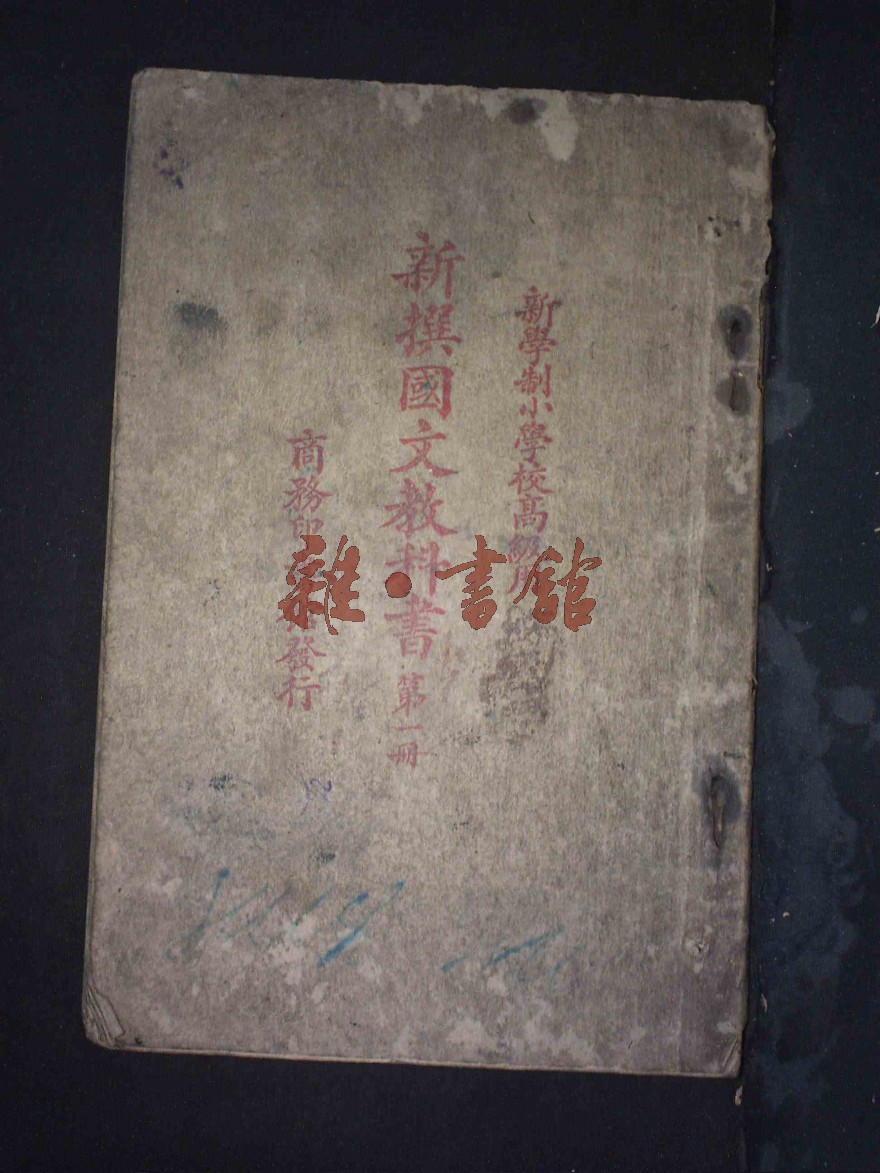 新學制小學校高級用
新撰國文教科書 第一冊
商務印書館發行
雜·書館